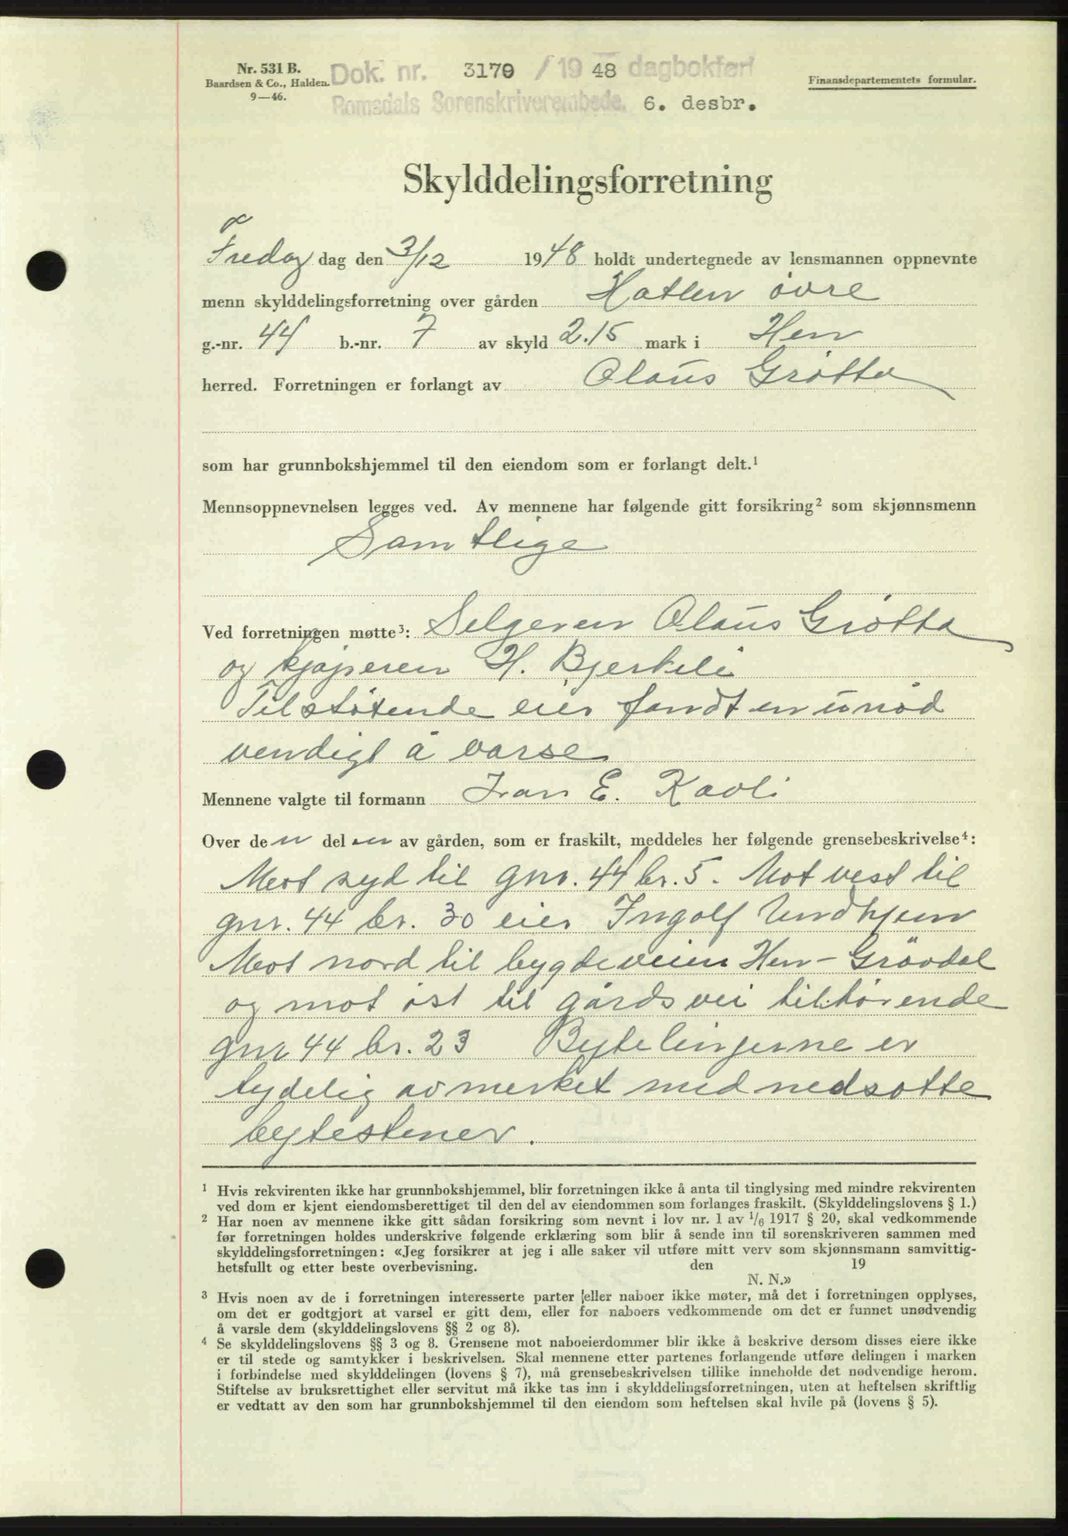 Nr. 531 B.
Baardsen & Co., Halden.
9—46.
Dok. nr. 3170 / 1948 dagbokført
Romsdals Sorenskriverembede. 6. desbr.
Finansdepartementets formular.
Skylddelingsforretning
Fredag dag den 3/12 1948 holdt undertegnede av lensmannen oppnevnte
menn skylddelingsforretning over gården Hatlen øvre
g.-nr. 44 b.-nr. 7 av skyld 2.15 mark i Hen
herred. Forretningen er forlangt av Olaus Grøtta
som har grunnbokshjemmel til den eiendom som er forlangt delt.¹
Mennsoppnevnelsen legges ved. Av mennene har følgende gitt forsikring² som skjønnsmenn
Samtlige
Ved forretningen møtte³: Selgeren Olaus Grøtta
og kjøperen H. Bjerkeli
Tilstøtende eier fandt en unød
vendigt å varse
Mennene valgte til formann Ivar E. Kavli
Over den delen av gården, som er fraskilt, meddeles her følgende grensebeskrivelse⁴:
Mot syd til gnr. 44 br. 5. Mot vest til
gnr. 44 br. 30 eier Ingolf Undhjem
Mot nord til bygdeveien Hen – Grøvdal
og mot øst til gårdsvei tilhørende
gnr 44 br. 23 Bytelinjerne er
tydelig avmerket med nedsatte
bytestener.
¹ Hvis rekvirenten ikke har grunnbokshjemmel, blir forretningen ikke å anta til tinglysing med mindre rekvirenten
ved dom er kjent eiendomsberettiget til den del av eiendommen som forlanges fraskilt. (Skylddelingslovens § 1.)
² Har noen av mennene ikke gitt sådan forsikring som nevnt i lov nr. 1 av 1/6 1917 § 20, skal vedkommende
før forretningen holdes underskrive følgende erklæring som blir å sende inn til sorenskriveren sammen med
skylddelingsforretningen: «Jeg forsikrer at jeg i alle saker vil utføre mitt verv som skjønnsmann samvittig-
hetsfullt og etter beste overbevisning. den 19
N. N.»
³ Hvis noen av de i forretningen interesserte parter eller naboer ikke møter, må det i forretningen opplyses,
om det er godtgjort at varsel er gitt dem, eller for naboers vedkommende om det er funnet unødvendig
å varsle dem (skylddelingslovens §§ 2 og 8).
⁴ Se skylddelingslovens §§ 3 og 8. Grensene mot naboeierdommer blir ikke å beskrive dersom disses eiere ikke
er til stede og samtykker i beskrivelsen. Skal mennene etter partenes forlangende utføre delingen i marken
i forbindelse med skylddelingen (lovens § 7), må grensebeskrivelsen tillike inneholde det nødvendige herom.
Stiftelse av bruksrettighet eller servitut må ikke tas inn i skylddelingsforretningen, uten at heftelsen skriftlig
er vedtatt av den som har grunnbokshjemmel til den eiendom som heftelsen skal hvile på (lovens § 5).